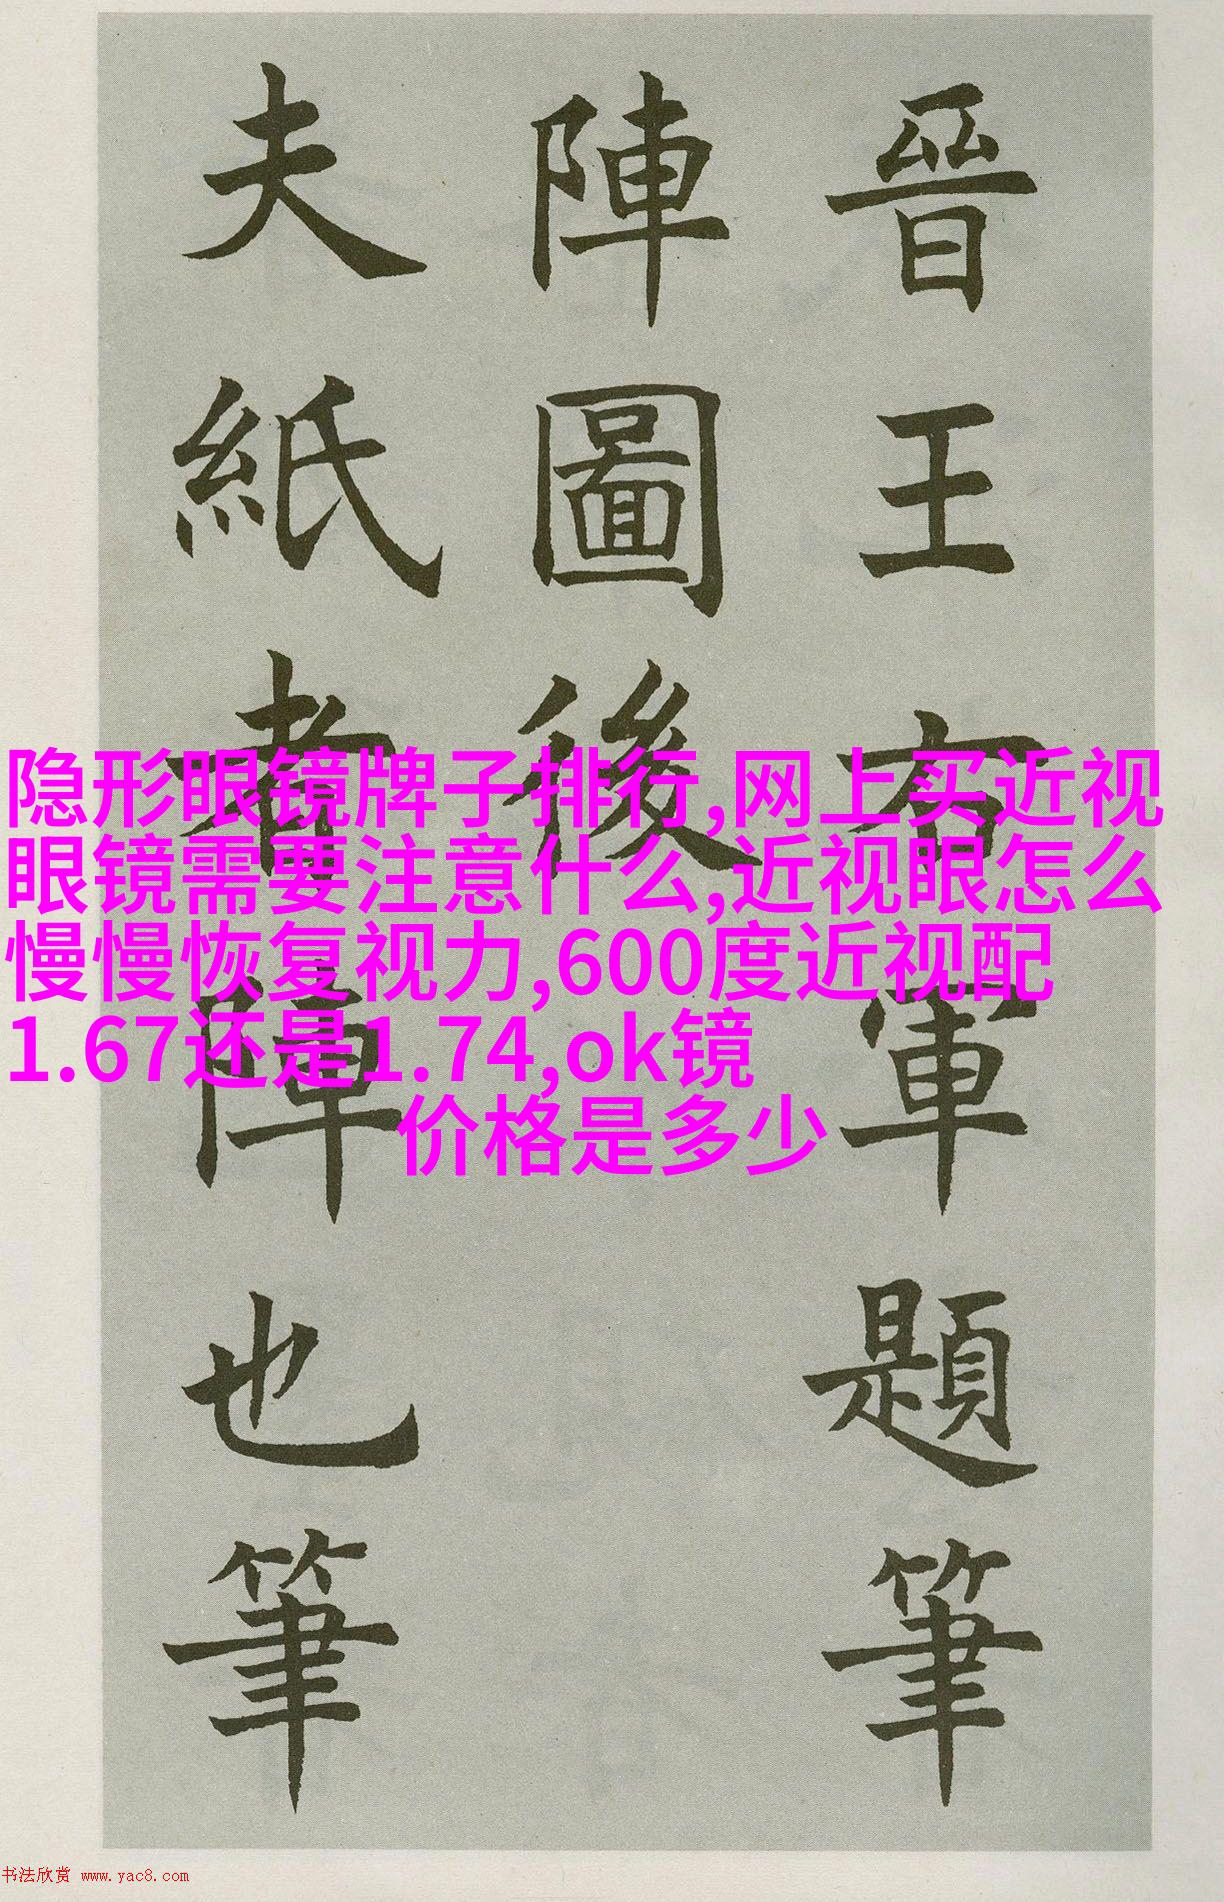 晉王右軍題筆
陣圖後
夫紙者陣也筆
隐形眼镜牌子排行,网上买近视
眼镜需要注意什么,近视眼怎么
慢慢恢复视力,600度近视配
1.67还是1.74,ok镜
价格是多少
书法欣赏 www.yac8.com